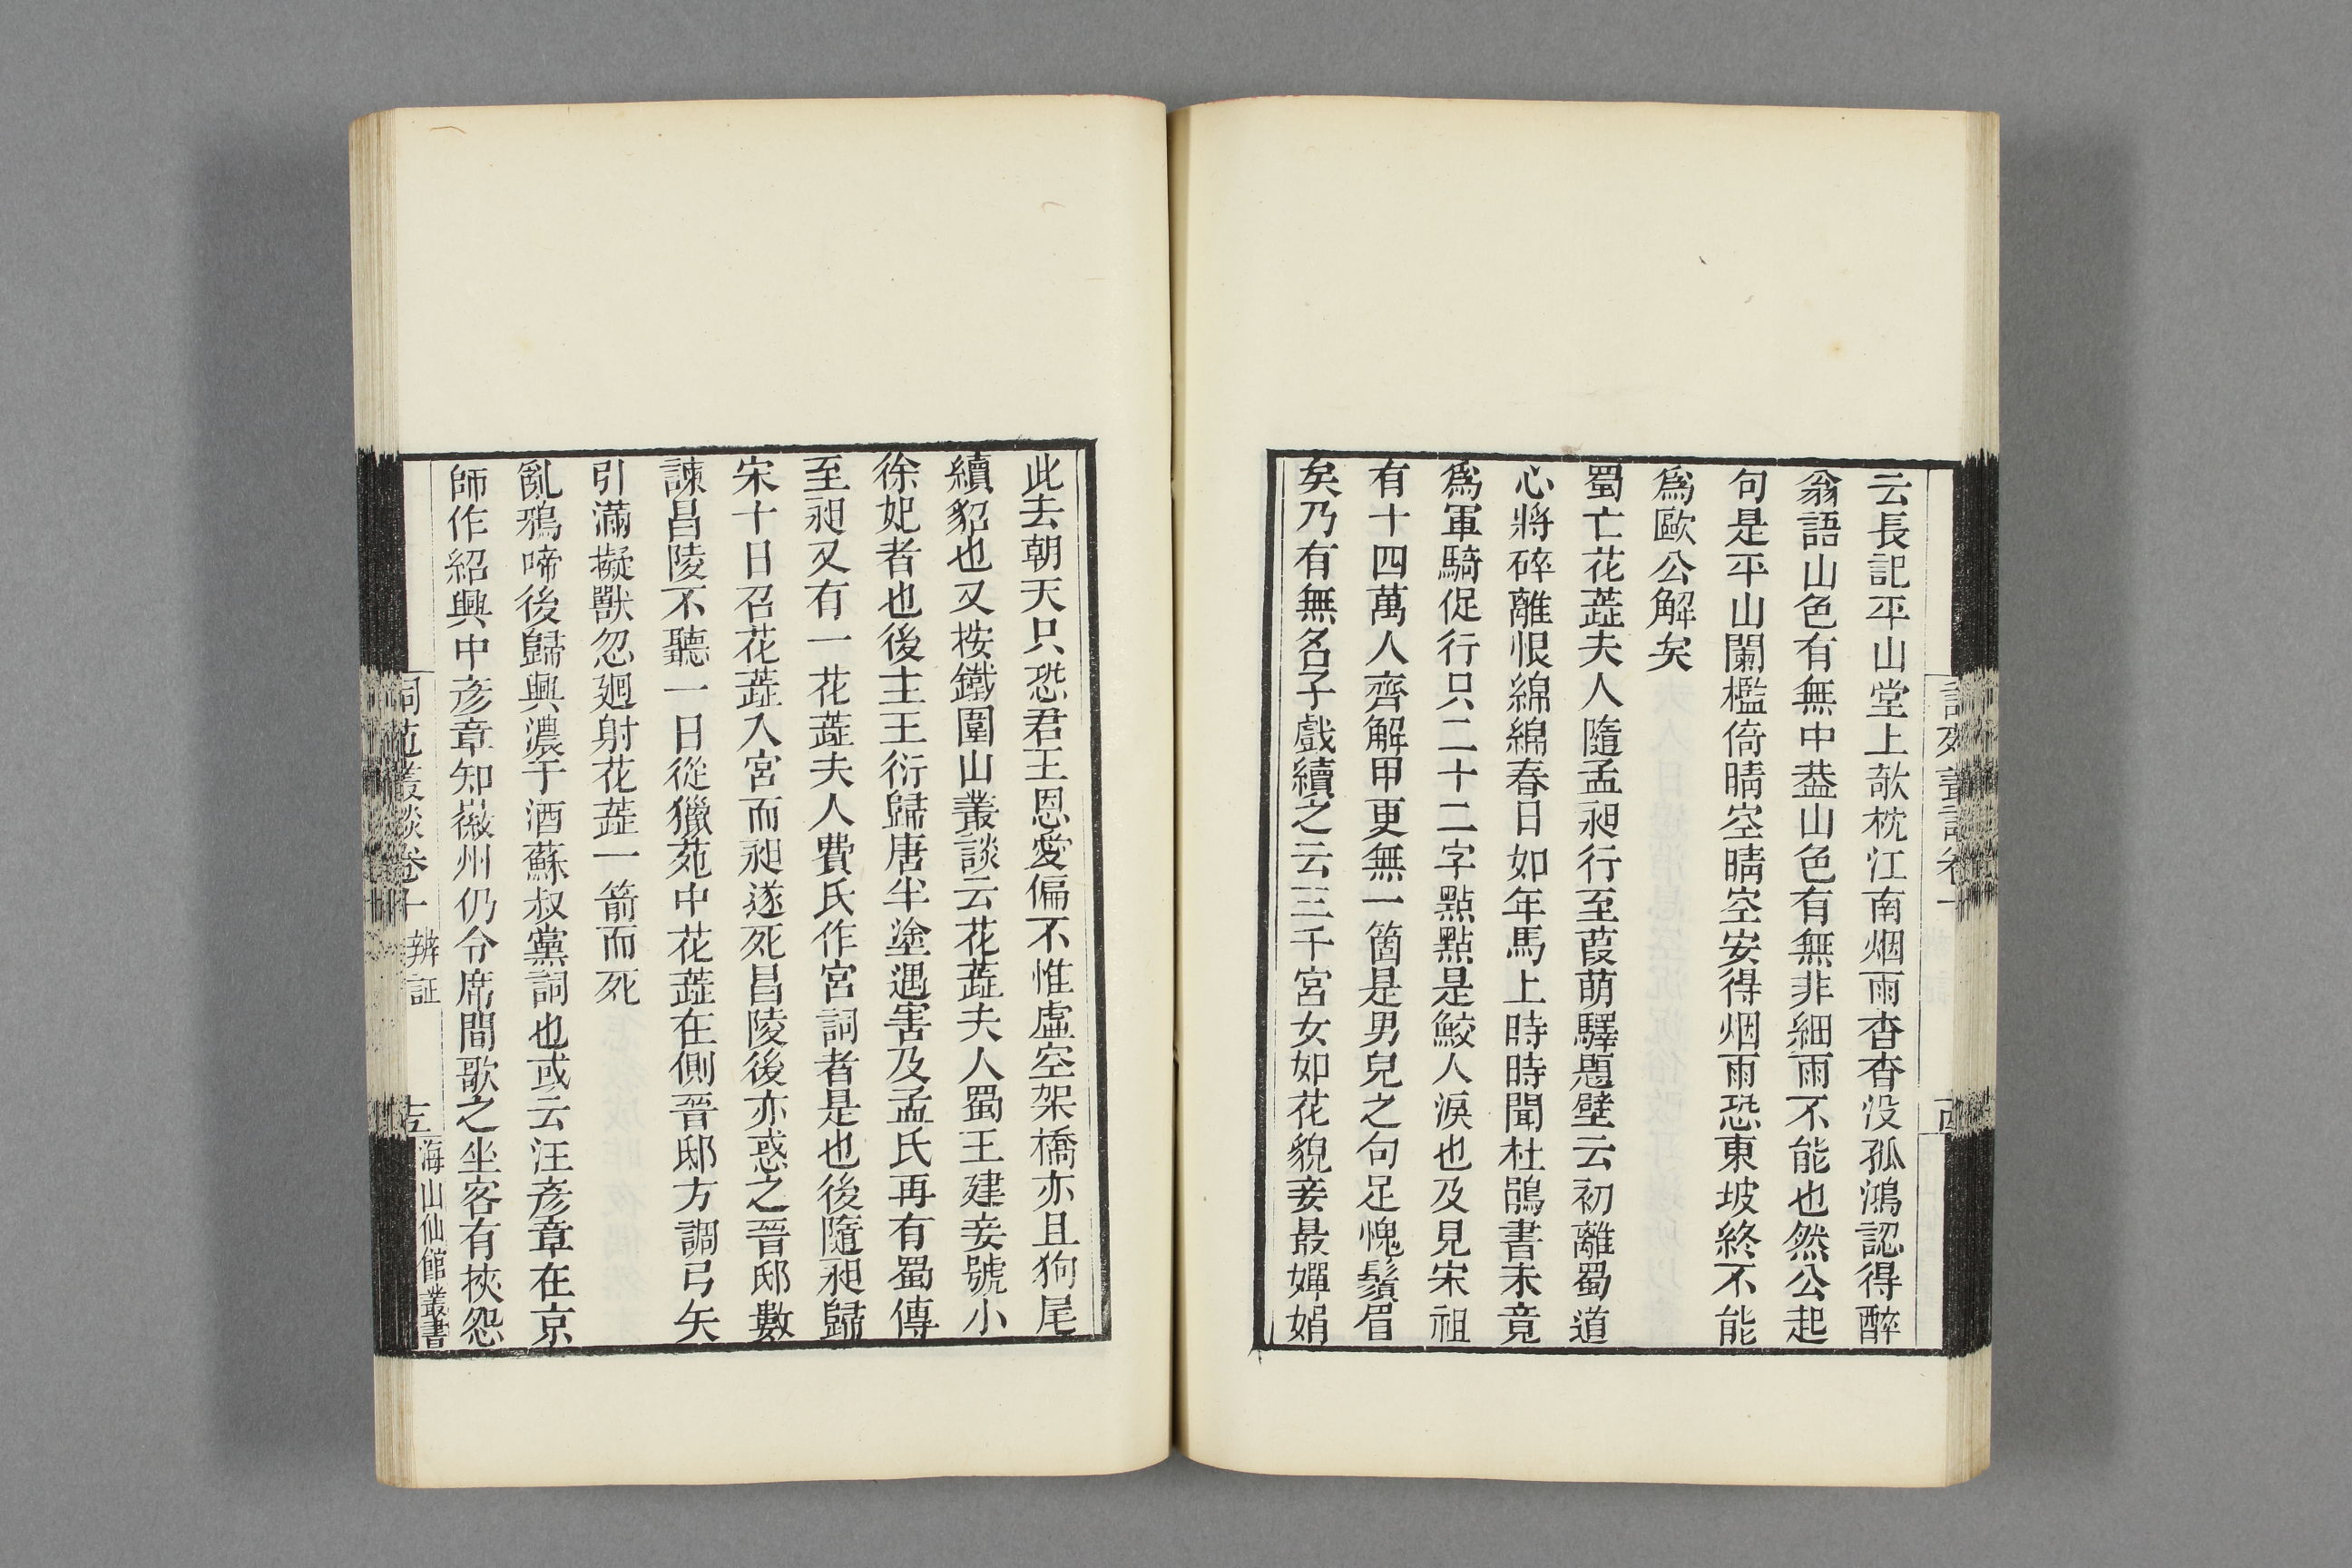 云長記平山堂上欹枕江南烟雨杳杳没孤鴻認得醉
翁語山色有無中葢山色有無非細雨不能也然公起
句是平山闌檻倚晴空晴空安得烟雨恐東坡終不能
爲歐公解矣
蜀亡花蕋夫人隨孟昶行至葭萌驛題壁云初離蜀道
心將碎離恨綿綿春日如年馬上時時聞杜鵑書未竟
爲軍騎促行只二十二字點點是鮫人淚也及見宋祖
有十四萬人齊解甲更無一箇是男兒之句足愧鬚眉
矣乃有無名子戲續之云三千宮女如花貌妾最嬋娟
此去朝天只恐君王恩愛偏不惟虛空架橋亦且狗尾
續貂也又按鐵圍山叢談云花蕋夫人蜀王建妾號小
徐妃者也後主王衍歸唐半塗遇害及孟氏再有蜀傳
至昶又有一花蕋夫人費氏作宮詞者是也後隨昶歸
宋十日召花蕋入宮而昶遂死昌陵後亦惑之晉邸數
諫昌陵不聽一日從獵苑中花蕋在側晉邸方調弓矢
引滿擬獸忽廻射花蕋一箭而死
亂鴉啼後歸興濃于酒蘇叔黨詞也或云汪彥章在京
師作紹興中彥章知徽州仍令席間歌之坐客有挾怨
詞苑叢談卷十 辨証
海山仙館叢書